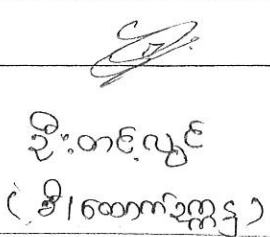 ဦးတင့်လွင်
( ဒီ/ထောက်ဥက္ကဋ္ဌ )